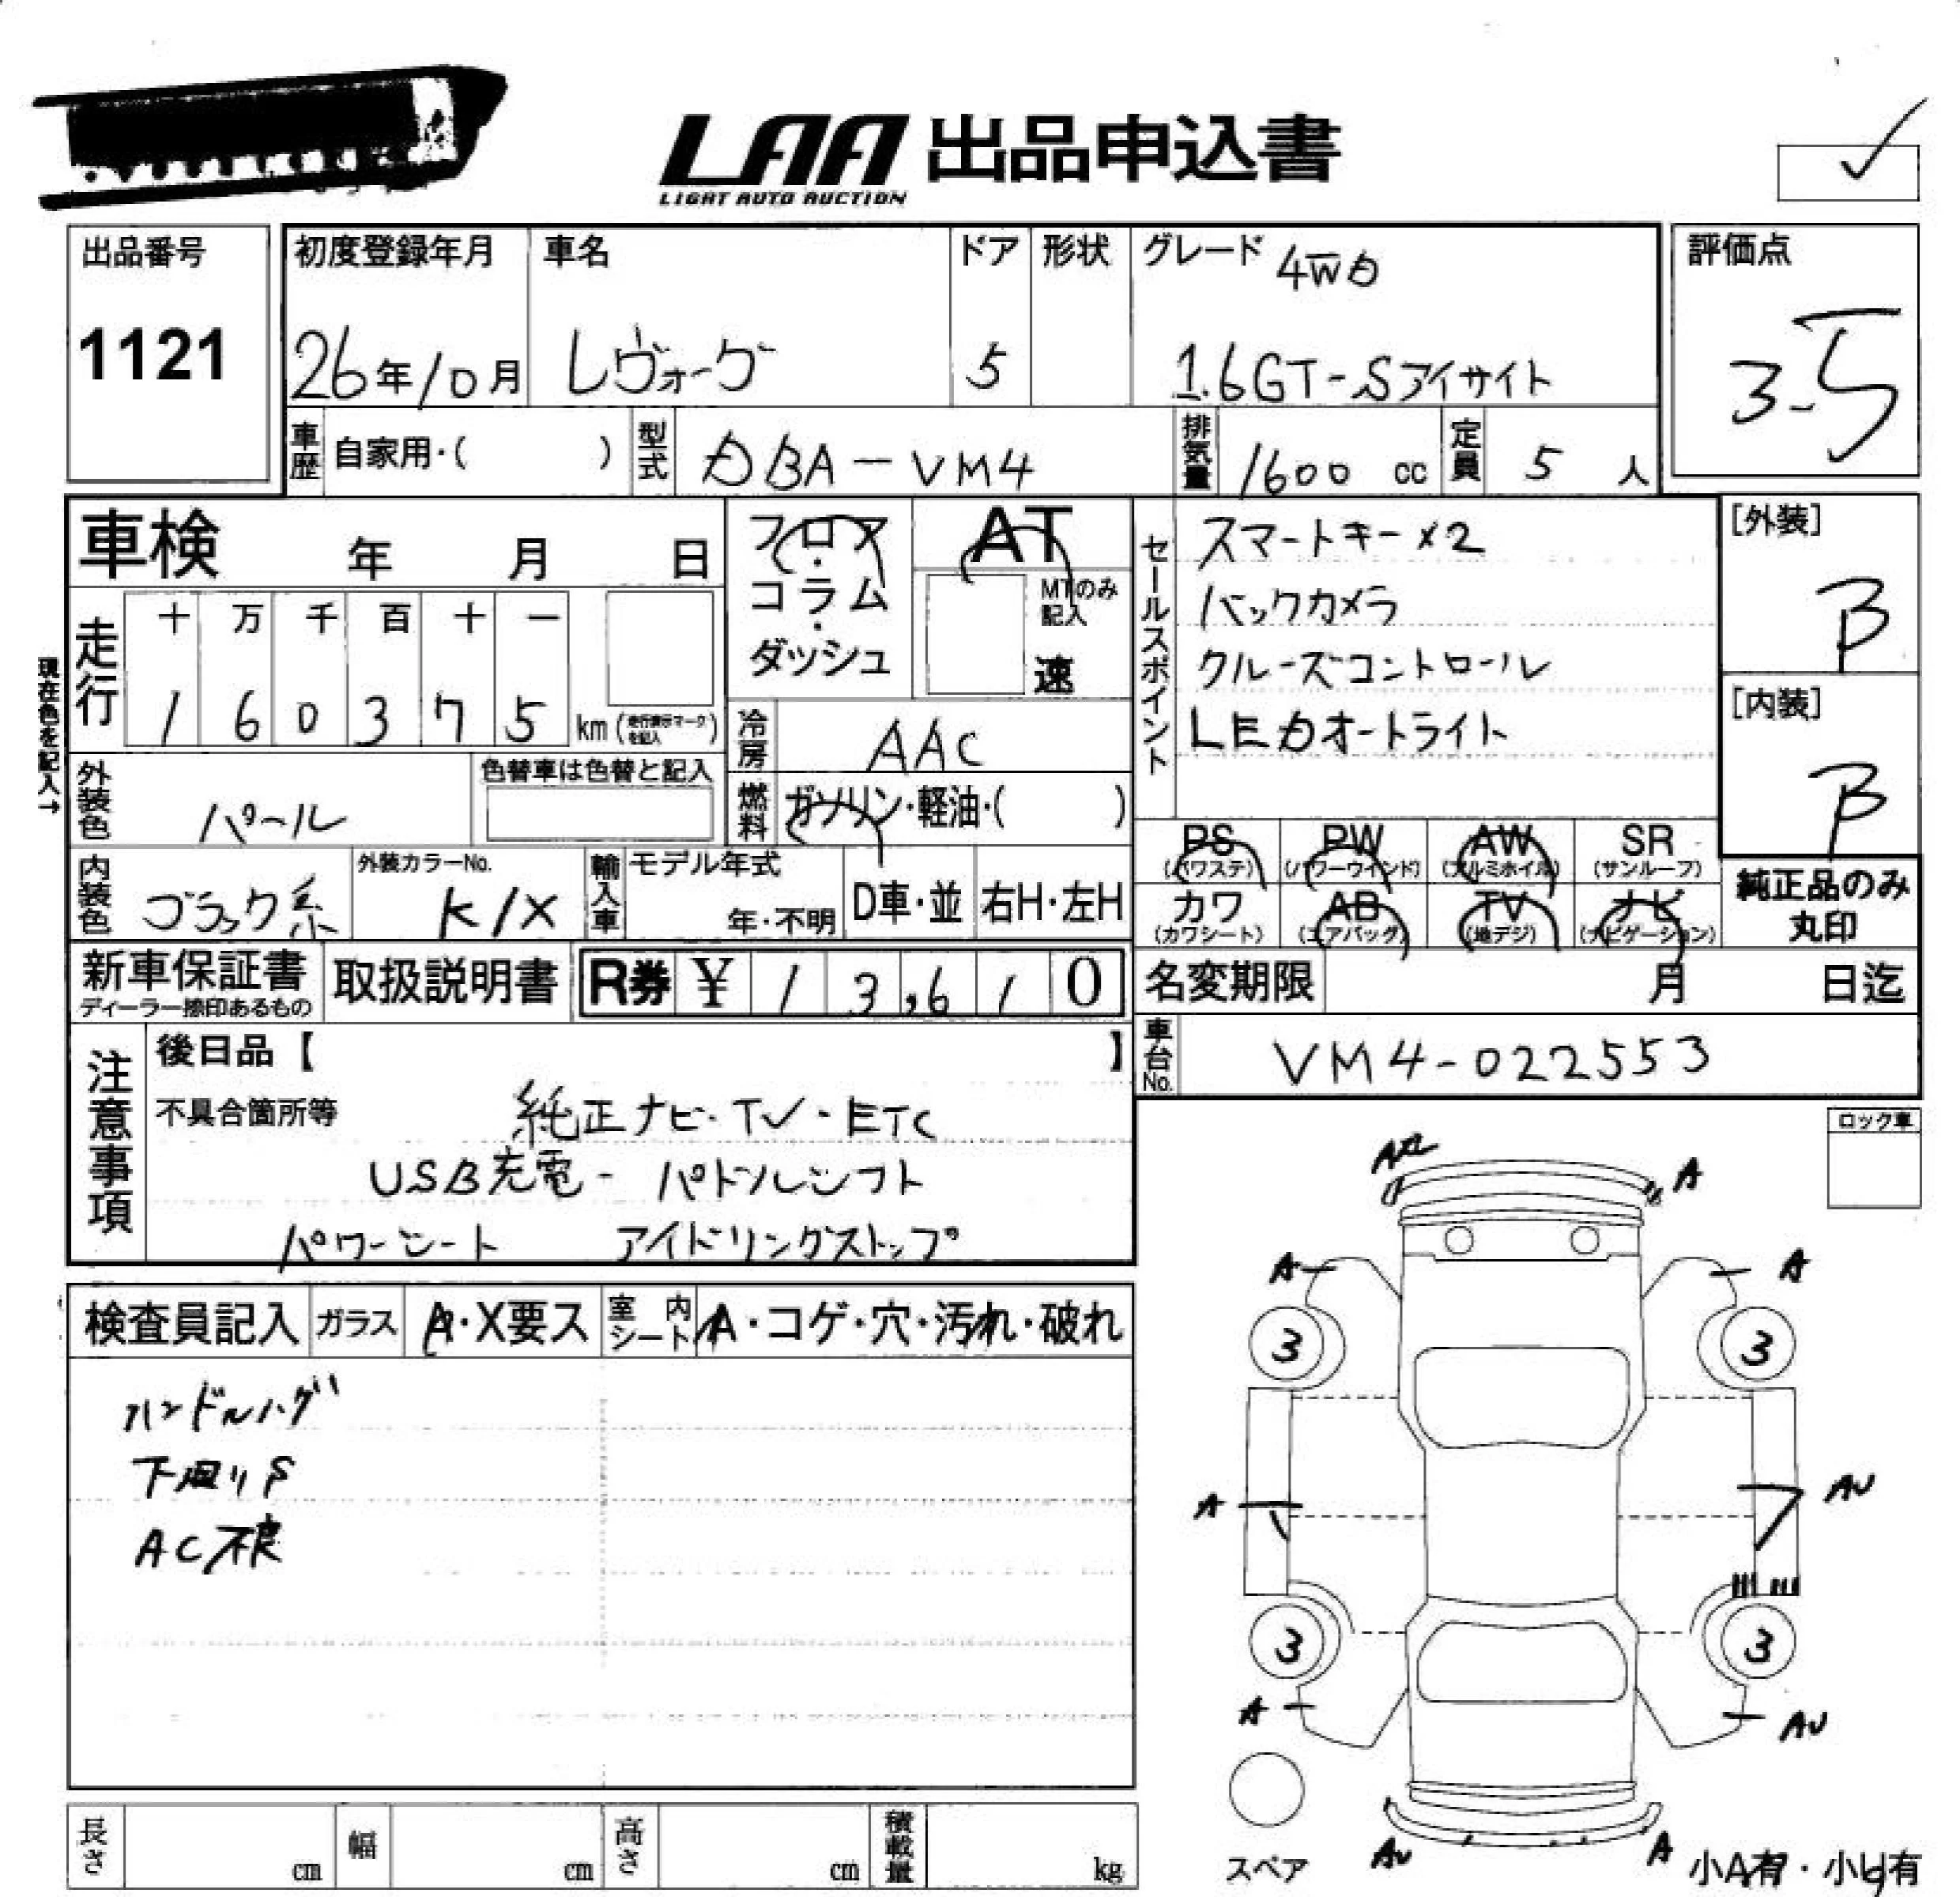 LAA 出品申込書
LIGHT AUTO AUCTION
出品番号
1121
初度登録年月
26年10月
車名
レヴォーグ
ドア
5
形状
グレード 4WD
1.6GT-Sアイサイト
評価点
3.5
車歴 自家用・( )
型式 DBA-VM4
排気量 1600 cc
定員 5 人
車検 年 月 日
フロア・コラム・ダッシュ
AT
MTのみ記入
速
セールスポイント
スマートキー×2
バックカメラ
クルーズコントロール
LEDオートライト
[外装]
B
[内装]
B
現在色を記入→
走行
十 万 千 百 十 一
1 6 0 3 7 5 km (走行表示マークを記入)
冷房 AAC
燃料 ガソリン・軽油・( )
外装色 パール
色替車は色替と記入
内装色 ブラック系
外装カラーNo.
K1X
輸入車 モデル年式
年・不明
D車・並
右H・左H
PS (パワステ)
PW (パワーウインド)
AW (アルミホイル)
SR (サンルーフ)
カワ (カワシート)
AB (エアバッグ)
TV (地デジ)
ナビ (ナビゲーション)
純正品のみ丸印
新車保証書
ディーラー捺印あるもの
取扱説明書
R券 ¥ 13,610
名変期限 月 日迄
車台No. VM4-022553
注意事項
後日品【 】
不具合箇所等
純正ナビ・TV・ETC
USB充電- パドルシフト
パワーシート アイドリングストップ
ロック車
検査員記入
ガラス A・X要ス
室内シート A・コゲ・穴・汚れ・破れ
ハンドルハゲ
下廻りS
AC不良
A
A
A
3
3
A
AU
3
3
A
AU
スペア
AU
A
小A有・小U有
長さ cm
幅 cm
高さ cm
積載量 kg